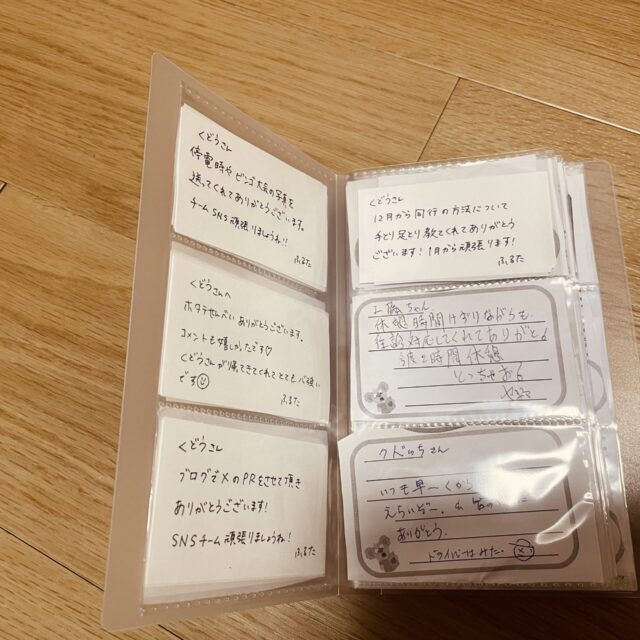 くどうさん
停電時や ビンゴ大会の写真を
送ってくれてありがとうございます。
チームSNS頑張りましょうね!!
ふるた
くどうさんへ
ホタテせんべい ありがとうございます。
コメントも嬉しかったです♡
くどうさんが帰ってきてくれてとても心強い
です
ふるた
くどうさん
ブログでXのPRをさせて頂き
ありがとうございます!
SNSチーム頑張りましょうね!
ふるた
くどうさん
12月から同行の方法について
手とり足とり教えてくれてありがとう
ございます!1月から頑張ります!
ふるた
工藤ちゃん
休憩時間けずりながらも
対応してくれてありがと。
2時間休憩
とっちゃお!
クドっちさん
いつも早〜くから
えらいぞー。&
ありがとう。
ドライバーはみた。